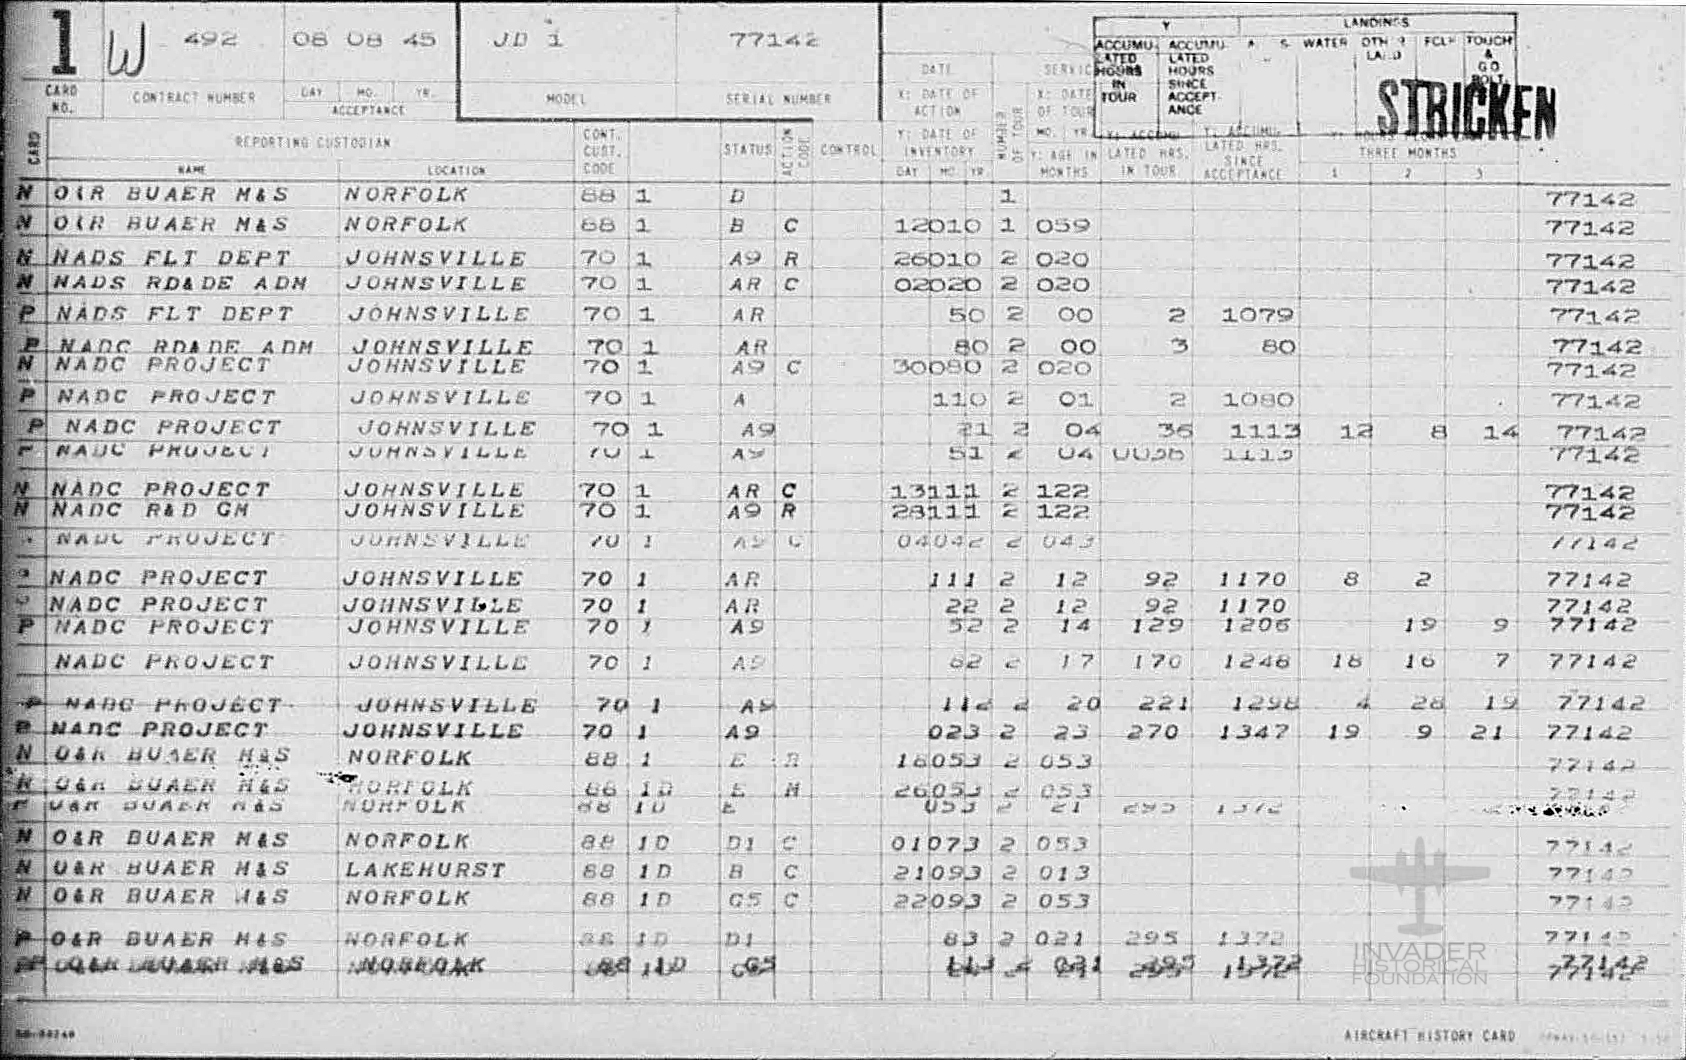 1 W 492 08 08 45 JD 1 77142
Y LANDINGS
ACCUMU- LATED HOURS IN TOUR ACCUMU- LATED HOURS SINCE ACCEPT- ANCE WATER FCLP TOUCH & GO
STRICKEN
CARD NO. CONTRACT NUMBER DAY MO. YR. ACCEPTANCE MODEL SERIAL NUMBER
DATE X: DATE OF ACTION Y: DATE OF INVENTORY DAY MO YR NUMBER OF TOUR X: DATE OF TOUR MO. YR. Y: AGE IN MONTHS
CARD REPORTING CUSTODIAN NAME LOCATION CONT. CUST. CODE STATUS ACTION CODE CONTROL LATED HRS. IN TOUR LATED HRS. SINCE ACCEPTANCE THREE MONTHS 1 2 3
N O&R BUAER M&S NORFOLK 88 1 D 1 77142
N O&R BUAER M&S NORFOLK 88 1 B C 12010 1 059 77142
N NADS FLT DEPT JOHNSVILLE 70 1 A9 R 26010 2 020 77142
N NADS RD&DE ADM JOHNSVILLE 70 1 AR C 02020 2 020 77142
P NADS FLT DEPT JOHNSVILLE 70 1 AR 50 2 00 2 1079 77142
P NADC RD&DE ADM JOHNSVILLE 70 1 AR 80 2 00 3 80 77142
N NADC PROJECT JOHNSVILLE 70 1 A9 C 30080 2 020 77142
P NADC PROJECT JOHNSVILLE 70 1 A 110 2 01 2 1080 77142
P NADC PROJECT JOHNSVILLE 70 1 A9 21 2 04 36 1113 12 8 14 77142
P NADC PROJECT JOHNSVILLE 70 1 A9 51 2 04 0036 1113 77142
N NADC PROJECT JOHNSVILLE 70 1 AR C 13111 2 122 77142
N NADC R&D GM JOHNSVILLE 70 1 A9 R 28111 2 122 77142
NADC PROJECT JOHNSVILLE 70 1 A9 C 04042 2 043 77142
NADC PROJECT JOHNSVILLE 70 1 AR 111 2 12 92 1170 8 2 77142
NADC PROJECT JOHNSVILLE 70 1 AR 22 2 12 92 1170 77142
P NADC PROJECT JOHNSVILLE 70 1 A9 52 2 14 129 1206 19 9 77142
NADC PROJECT JOHNSVILLE 70 1 A9 82 2 17 170 1248 18 16 7 77142
P NADC PROJECT JOHNSVILLE 70 1 A9 112 2 20 221 1298 4 28 19 77142
P NADC PROJECT JOHNSVILLE 70 1 A9 023 2 23 270 1347 19 9 21 77142
N O&R BUAER M&S NORFOLK 88 1 E R 18053 2 053 77142
N O&R BUAER M&S NORFOLK 88 1D E M 26053 2 053 77142
P O&R BUAER M&S NORFOLK 88 1D E 053 2 21 295 1372
N O&R BUAER M&S NORFOLK 88 1D D1 C 01073 2 053 77142
N O&R BUAER M&S LAKEHURST 88 1D B C 21093 2 013 77142
N O&R BUAER M&S NORFOLK 88 1D G5 C 22093 2 053 77142
P O&R BUAER M&S NORFOLK 88 1D D1 83 2 021 295 1372 77142
P O&R BUAER M&S NORFOLK 88 1D G5 113 2 021 295 1372 77142
INVADER
HISTORICAL
FOUNDATION
AIRCRAFT HISTORY CARD